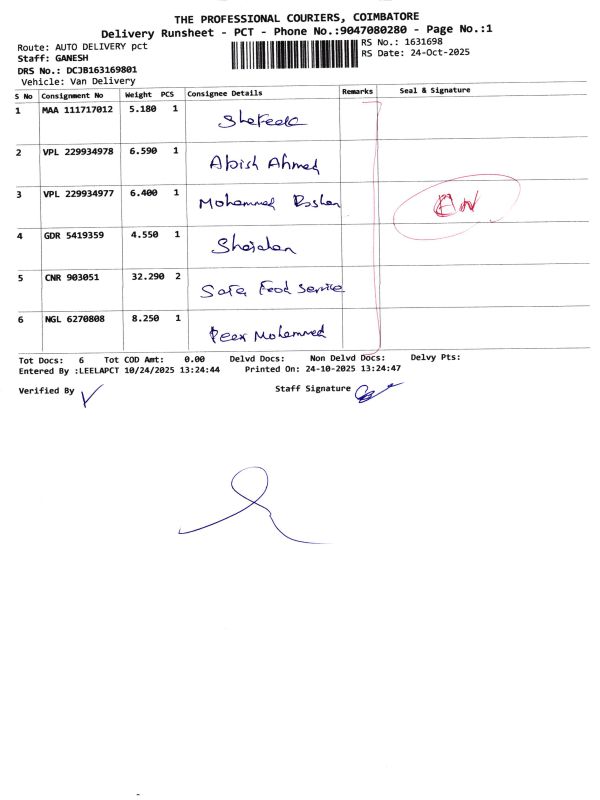 THE PROFESSIONAL COURIERS, COIMBATORE
Delivery Runsheet - PCT - Phone No.:9047080280 - Page No.:1
Route: AUTO DELIVERY pct
RS No.: 1631698
Staff: GANESH
RS Date: 24-Oct-2025
DRS No.: DCJB163169801
Vehicle: Van Delivery
S No Consignment No Weight PCS Consignee Details Remarks Seal & Signature
1 MAA 111717012 5.180 1
2 VPL 229934978 6.590 1 Abish Ahmed
3 VPL 229934977 6.400 1 Mohammed Roshan
4 GDR 5419359 4.550 1
5 CNR 903051 32.290 2 Safa Food Service
6 NGL 6270808 8.250 1 Peer Mohammed
Tot Docs: 6 Tot COD Amt: 0.00 Delvd Docs: Non Delvd Docs: Delvy Pts:
Entered By :LEELAPCT 10/24/2025 13:24:44 Printed On: 24-10-2025 13:24:47
Verified By Staff Signature